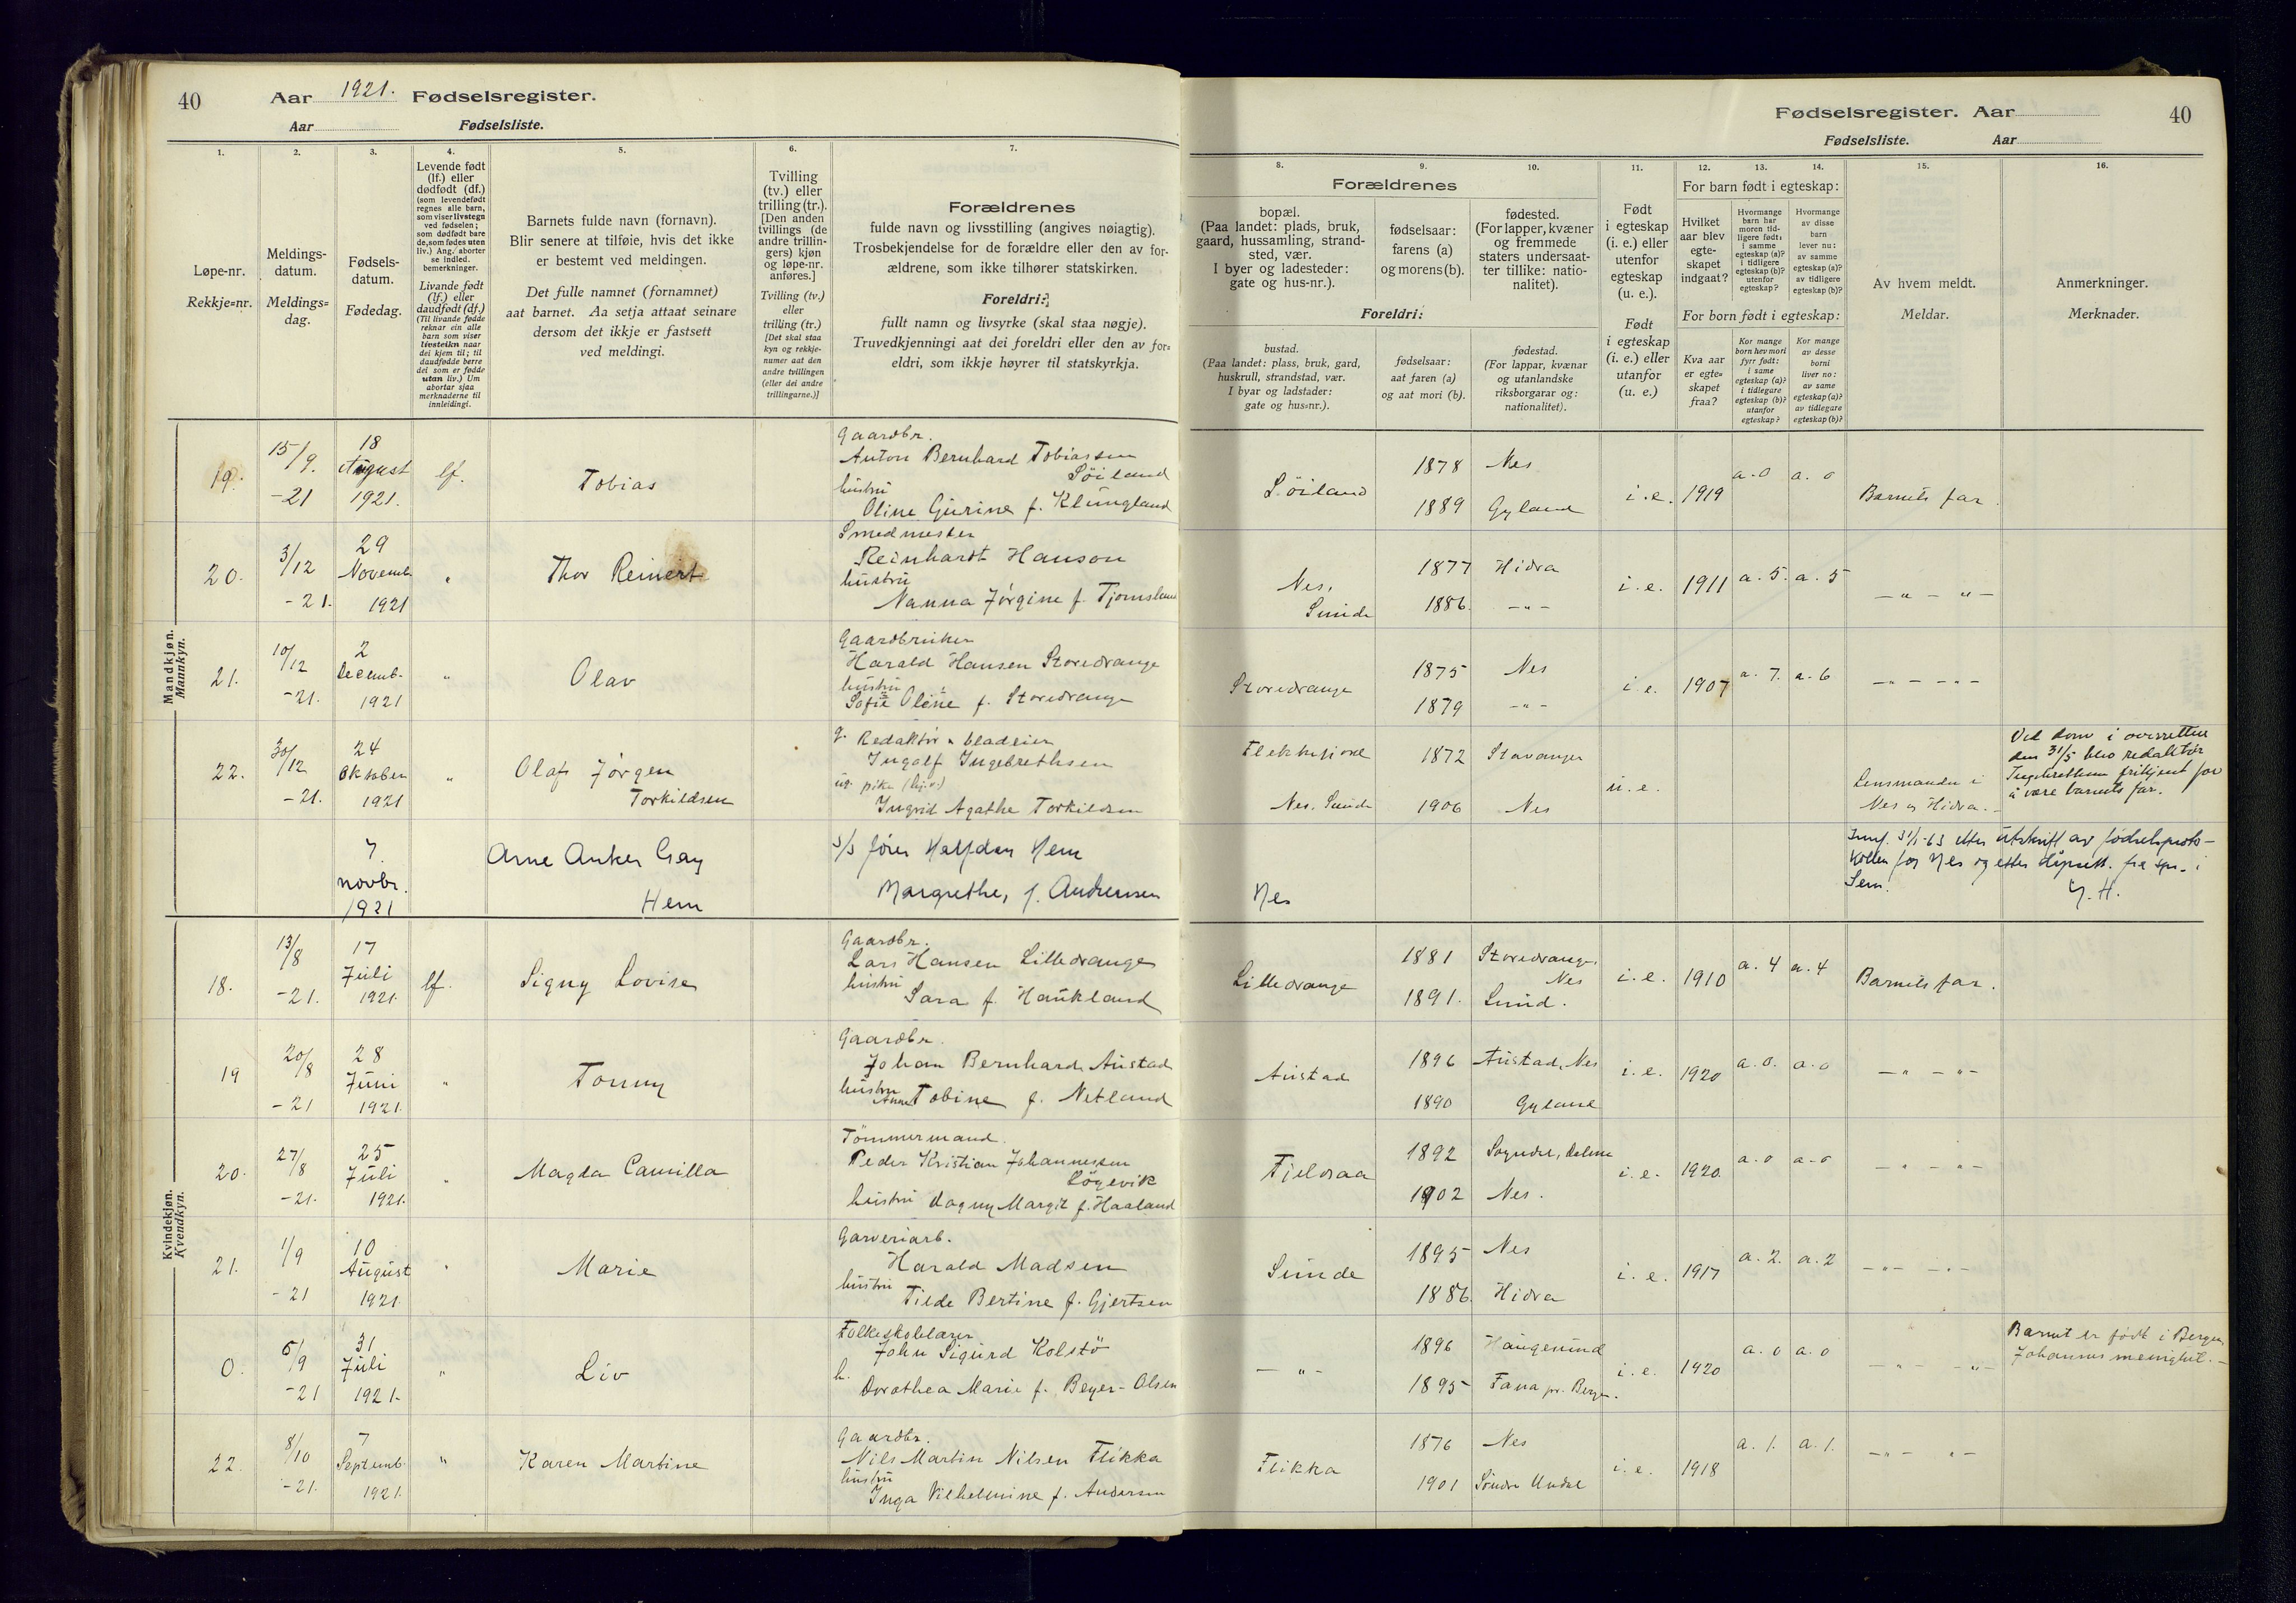 40 Aar 1921. Fødselsregister.
Aar Fødselsliste.
1. 2. 3. 4. 5. 6. 7.
Løpe-nr.
Rekkje=nr.
Meldings-
datum.
Meldings=
dag.
Fødsels-
datum.
Fødedag.
Levende født
(lf.) eller
dødfødt (df.)
(som levendefødt
regnes alle barn,
som viser livstegn
ved fødselen;
som dødfødt bare
de, som fødes uten
liv.) Ang. aborter
se indled.
bemerkninger.
Livande født
(lf.) eller
daudfødt (df.)
(Til livande fødde
reknar ein alle
barn som viser
livsteikn naar
dei kjem til; til
daudfødde berre
dei som er fødde
utan liv.) Um
abortar sjaa
merknaderne til
innleidingi.
Barnets fulde navn (fornavn).
Blir senere at tilføie, hvis det ikke
er bestemt ved meldingen.
Det fulle namnet (fornamnet)
aat barnet. Aa setja attaat seinare
dersom det ikkje er fastsett
ved meldingi.
Tvilling
(tv.) eller
trilling (tr.).
[Den anden
tvillings (de
andre trillin-
gers) kjøn
og løpe-nr.
anføres.]
Tvilling (tv.)
eller
trilling (tr.)
[Det skal staa
kyn og rekkje-
numer aat den
andre tvillingen
(eller dei andre
trillingarne.)]
Forældrenes
fulde navn og livsstilling (angives nøiagtig).
Trosbekjendelse for de forældre eller den av for-
ældrene, som ikke tilhører statskirken.
Foreldri:
fullt namn og livsyrke (skal staa nøgje).
Truvedkjenningi aat dei foreldri eller den av for=
eldri, som ikkje høyrer til statskyrkja.
Mandkjøn.
Mannkyn.
19. 15/9. -21 18 August 1921. lf. Tobias
Gaardbr.
Anton Bernhard Tobiassen
Söiland
hustru
Oline Gurine f. Klungland
20. 3/12 -21. 29 Novemb. 1921 " Thor Reinert
Smedmester
Reinhardt Hanson
hustru
Nanna Jørgine f. Tjomsland
21. 10/12 -21. 2 Decemb. 1921 " Olav
Gaardbruker
Harald Hansen Storedrange
hustru
Sofie Oline f. Storedrange
22. 30/12 -21. 24 Oktober 1921 " Olaf Jørgen
Torkildsen
g. Redaktør & bladeier
Ingolf Ingebrethsen
ug. pike (hj.v.)
Ingrid Agathe Torkildsen
7. novbr. 1921 Arne Anker Gay
Hem
s/s fører Halfdan Hem
Margrethe, f. Andersen
Kvindekjøn.
Kvendkyn.
18. 13/8 -21. 17 Juli 1921. lf. Signy Lovise
Gaardbr.
Lars Hansen Lilledrange
hustru
Sara f. Haukland
19 20/8 -21 28 Juni 1921. " Tonny
Gaardbr.
Johan Bernhard Austad
hustru
Anne Tobine f. Netland
20. 27/8 -21. 25 Juli 1921. " Magda Camilla
Tömmermand.
Peder Kristian Johannessen
Lögevik
hustru Dagny Margit f. Haaland
21. 1/9 -21 10 August 1921. " Marie
Garveriarb.
Harald Madsen
hustru
Tilde Bertine f. Gjertsen
0. 6/9 -21 31 Juli 1921. " Liv
Folkeskolelærer
John Sigurd Kolstö
h.
Dorothea Marie f. Beyer-Olsen
22. 8/10 -21. 7 Septemb. 1921. " Karen Martine
Gaardbr.
Nils Martin Nilsen Flikka
hustru
Inga Vilhelmine f. Andersen
Fødselsregister. Aar 40
Fødselsliste. Aar
8. 9. 10. 11. 12. 13. 14. 15. 16.
Forældrenes
bopæl.
(Paa landet: plads, bruk,
gaard, hussamling, strand-
sted, vær.
I byer og ladesteder:
gate og hus-nr.).
fødselsaar:
farens (a)
og morens (b).
fødested.
(For lapper, kvæner
og fremmede
staters undersaat-
ter tillike: natio-
nalitet).
Foreldri:
bustad.
(Paa landet: plass, bruk, gard,
huskrull, strandstad, vær.
I byar og ladstader:
gate og hus=nr.).
fødselsaar:
aat faren (a)
og aat mori (b).
fødestad.
(For lappar, kvænar
og utanlandske
riksborgarar og:
nationalitet).
Født
i egteskap
(i. e.) eller
utenfor
egteskap
(u. e.).
Født
i egteskap
(i. e.) eller
utanfor
(u. e.)
For barn født i egteskap:
Hvilket
aar blev
egte-
skapet
indgaat?
Hvormange
barn har
moren tid-
ligere født:
i samme
egteskap (a)?
i tidligere
egteskap (b)?
utenfor
egteskap?
Hvormange
av disse
barn
lever nu:
av samme
egteskap (a)?
av tidligere
egteskap (b)?
For born født i egteskap:
Kva aar
er egte=
skapet
fraa?
Kor mange
born hev mori
fyrr født:
i same
egteskap (a)?
i tidlegare
egteskap (b)?
utanfor
egteskap?
Kor mange
av desse
borni
liver no:
av same
egteskap (a)?
av tidlegare
egteskap (b)?
Av hvem meldt.
Meldar.
Anmerkninger.
Merknader.
Söiland 1878 Nes
1889 Gyland i. e. 1919 a. 0 a. 0 Barnets far
Nes, Sunde 1877 Hidra
1886. -"- i. e. 1911 a. 5. a. 5 -"- "-
Storedrange 1875 Nes
1879 -"- i. e. 1907 a. 7. a. 6 -"- -"-
Flekkefjord 1872 Stavanger
Nes, Sunde 1906 Nes u. e.
Lensmanden i
Nes og Hidra.
Ved dom i overretten
den 31/5 blev redaktør
Ingebrethsen frikjent for
å være barnets far.
Nes
Innf. 31/1-63 etter utskrift av fødselsproto-
kollen for Nes og etter dåpsatt. fra spr. i
Sem.
Y. H.
Lilledrange 1881 Storedrange, Nes
1891. Lund. i. e. 1910 a. 4 a. 4 Barnets far.
Austad 1896 Austad, Nes
1890 Gyland i. e. 1920 a. 0. a. 0 -"- -"-
Fjeldsaa 1892 Sogndal, Dalene
1902 Nes. i. e. 1920. a. 0 a. 0 -"- -"-
Sunde 1895 Nes
1886. Hidra i. e. 1917 a. 2. a. 2 -"- -"-
-"- 1896 Haugesund
1895 Fana pr. Bergen. i. e. 1920 a. 0 a. 0 -"- -"-
Barnet er født i Bergen,
Johannes menighet.
Flikka 1876 Nes
1901 Söndre Undal i. e. 1918 a. 1. a. 1. -"- "-